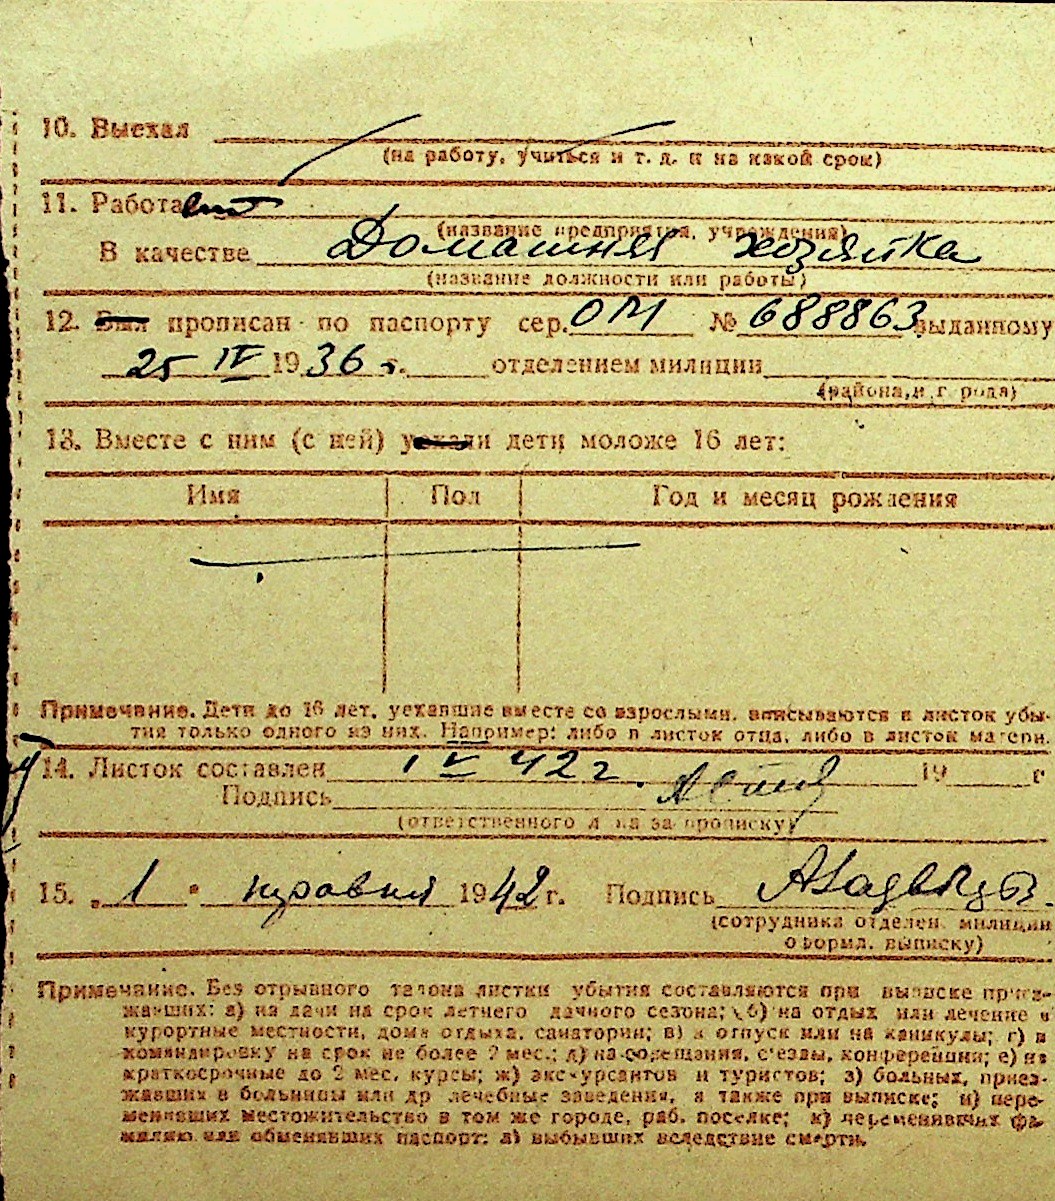 10. Выехал
(на работу, учиться и т. д. и на какой срок)
11. Работает
(название предприятия, учреждения)
В качестве Домашняя хозяйка
(название должности или работы)
12. Был прописан по паспорту сер. ОМ № 688863 выданному
25 IV 1936 г. отделением милиции
(района, и г рода)
13. Вместе с ним (с ней) уехали дети моложе 16 лет:
Имя Пол Год и месяц рождения
Примечание. Дети до 16 лет, уехавшие вместе со взрослыми, вписываются в листок убы-
тия только одного из них. Например: либо в листок отца, либо в листок матери.
14. Листок составлен 1 V 42 г. 19 г
Подпись
(ответственного л ца за прописку)
15. „1" травня 1942 г. Подпись
(сотрудника отделен. милиции
оформл. выписку)
Примечание. Без отрывного талона листки убытия составляются при выписке приез-
жавших: а) на дачи на срок летнего дачного сезона; б) на отдых или лечение в
курортные местности, дома отдыха, санатории; в) в отпуск или на каникулы; г) в
командировку на срок не более 2 мес.; д) на совещания, с'езды, конференции; е) на
краткосрочные до 2 мес. курсы; ж) экскурсантов и туристов; з) больных, приез-
жавших в больницы или др лечебные заведения, а также при выписке; и) пере-
менивших местожительство в том же городе, раб. поселке; к) переменивших фа-
милию или обменявших паспорт; л) выбывших вследствие смерти.